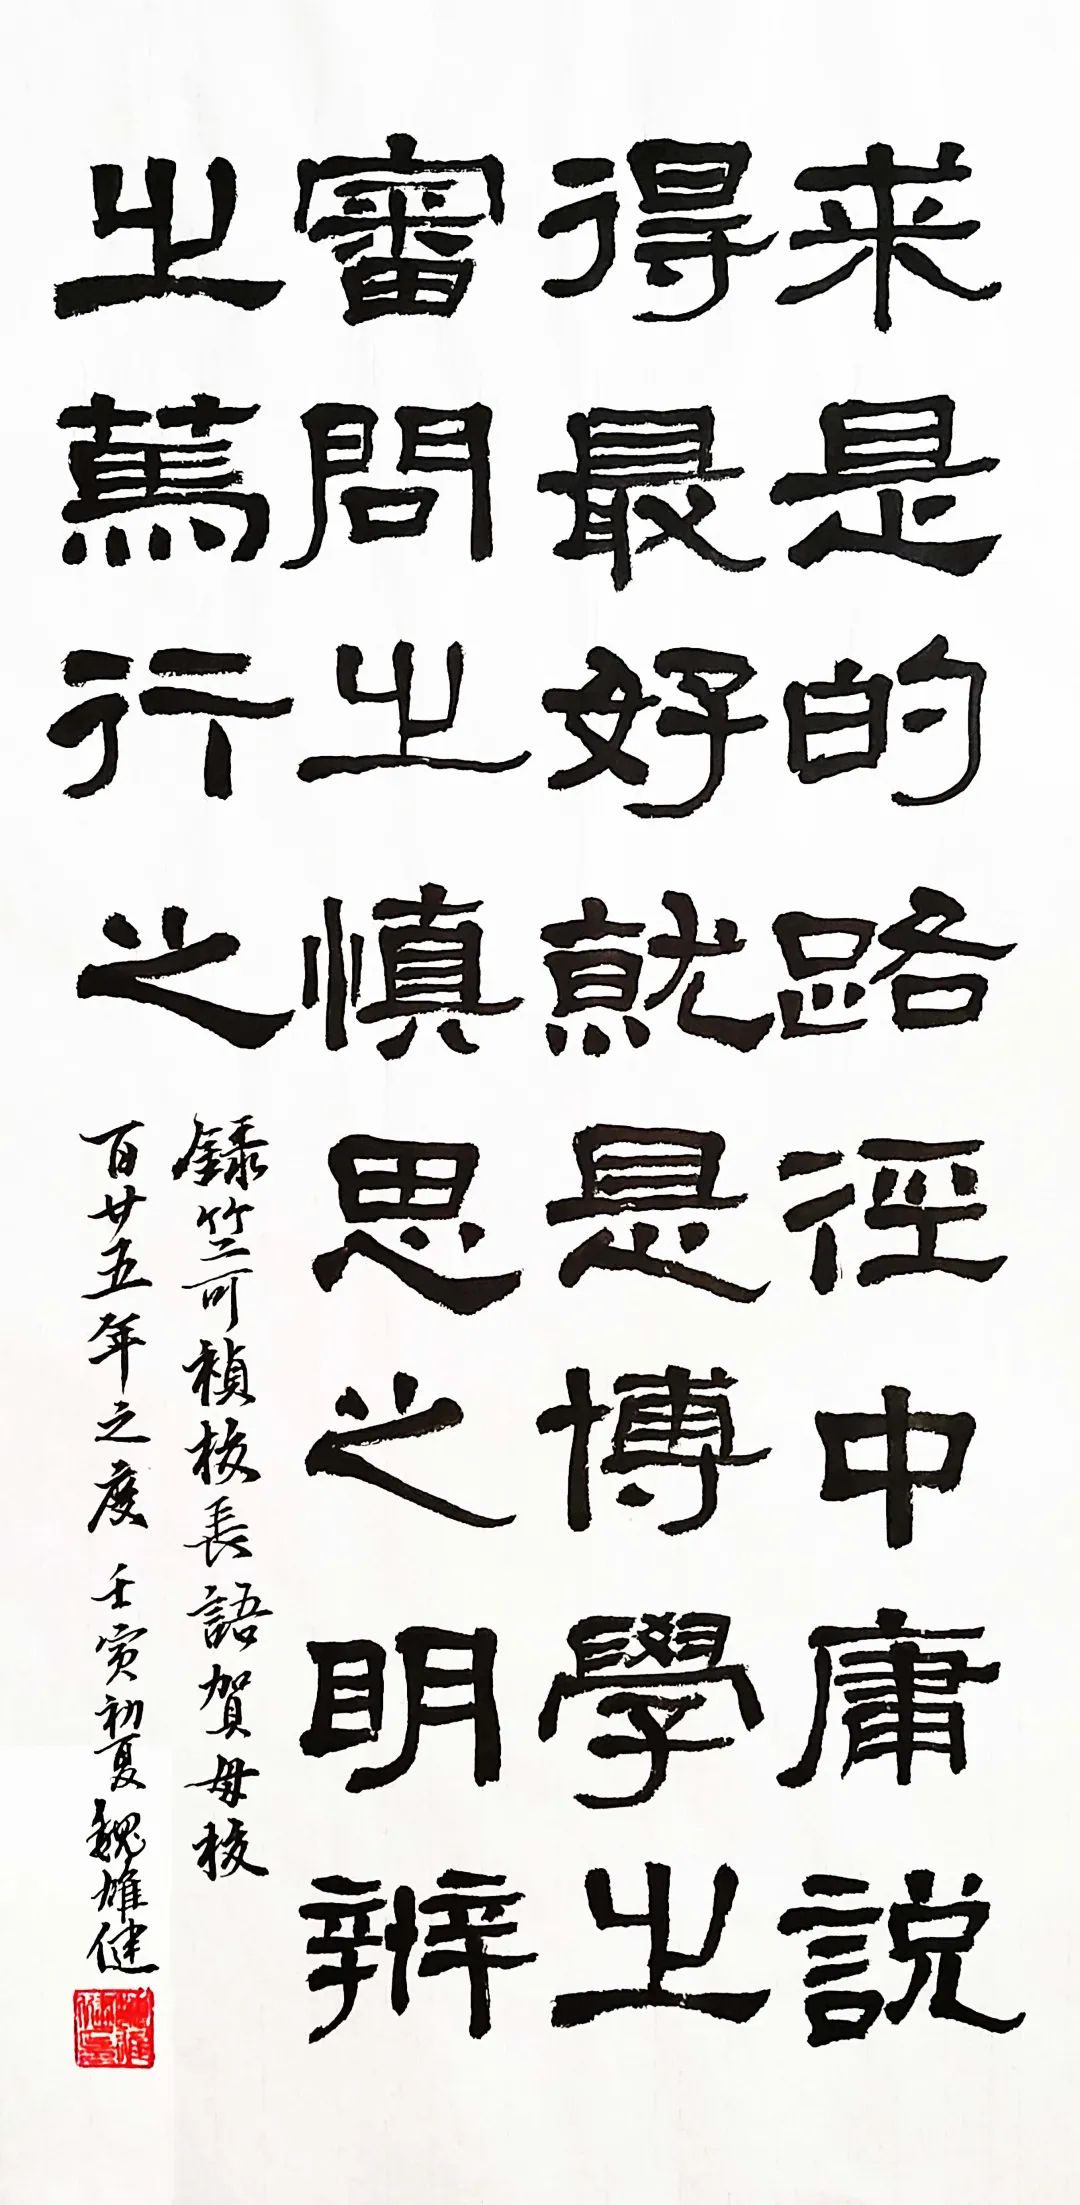 求是的路徑中庸說
得最好就是博學之
審問之慎思之明辨
之篤行之
錄竺可楨校長語賀母校
百廿五年之慶 壬寅初夏魏雄健